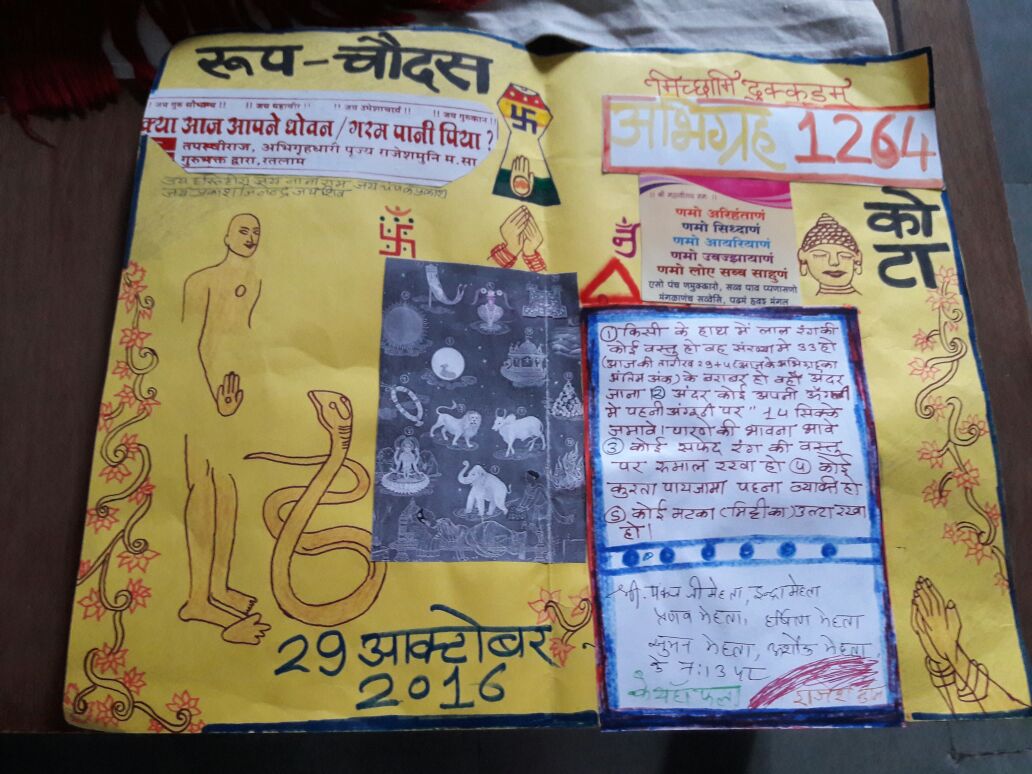 रूप-चौदस
!! जय गुरु सौभाग्य !! !! जय महावीर !! !! जय उमेशाचार्य !! !! जय गुरुकान !!
क्या आज आपने धोवन/गरम पानी पिया?
तपस्वीराज, अभिगृहधारी पूज्य राजेशमुनि म.सा
गुरुभक्त द्वारा,रतलाम
मिच्छामि दुक्कडम्
अभिग्रह 1264
को
टा
णमो अरिहंताणं
णमो सिध्दाणं
णमो आयरियाणं
णमो उवज्झायाणं
णमो लोए सव्व साहुणं
एसो पंच णमुक्कारो, सव्व पाव प्पणासणो
मंगलाणंच सव्वेसिं, पढमं हवइ मंगल
① किसी के हाथ में लाल रंग की
कोई वस्तु हो वह संख्या मे 33 हो
(आज की तारीख 29+4 (आज के अभिग्रह का
अंतिम अंक) के बराबर हो वहाँ अंदर
जाना ② अंदर कोई अपनी ऊँगली
मे पहनी अंगूठी पर "14 सिक्के
जमावे। पारणे की भावना भावे
③ कोई सफेद रंग की वस्तु
पर रुमाल रखा हो ④ कोई
कुरता पायजामा पहना व्यक्ति हो
⑤ कोई मटका (मिट्टी का) उल्टा रखा
हो।
श्री. पंकज जी मेहता, इन्द्रा मेहता
प्रणव मेहता, हर्षिण मेहता
सुमन मेहता, अशोक मेहता
के यहाँ फला
29 आक्टोबर
2016